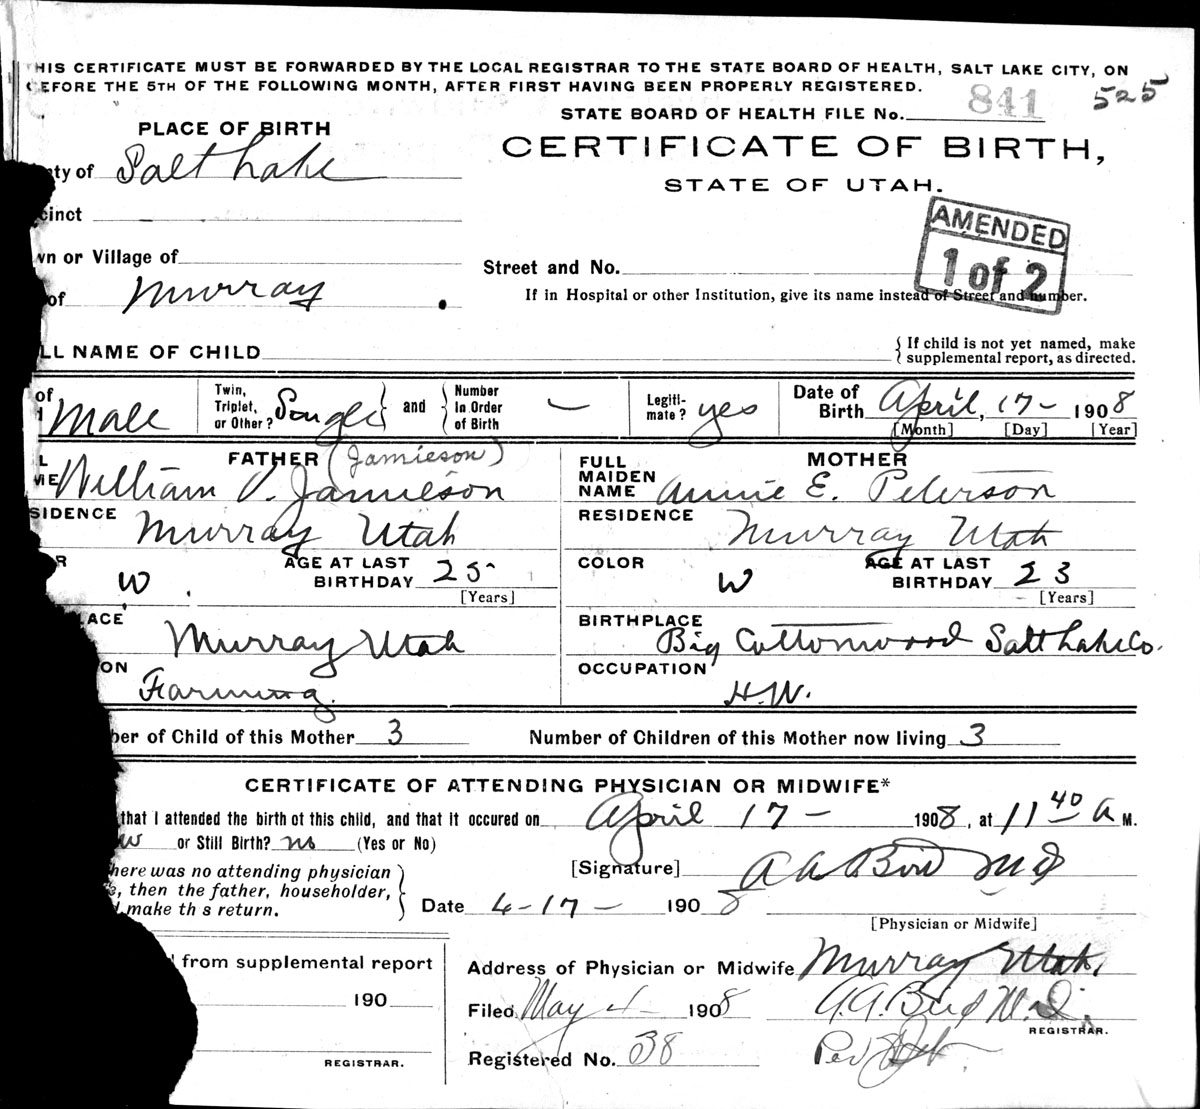 HIS CERTIFICATE MUST BE FORWARDED BY THE LOCAL REGISTRAR TO THE STATE BOARD OF HEALTH, SALT LAKE CITY, ON
EFORE THE 5TH OF THE FOLLOWING MONTH, AFTER FIRST HAVING BEEN PROPERLY REGISTERED.
841 525
STATE BOARD OF HEALTH FILE No.
PLACE OF BIRTH
CERTIFICATE OF BIRTH,
ty of Salt Lake
STATE OF UTAH.
cinct
AMENDED
1 of 2
wn or Village of
Street and No.
of Murray
If in Hospital or other Institution, give its name instead of Street and number.
LL NAME OF CHILD
{ If child is not yet named, make
supplemental report, as directed.
of Male
Twin, Triplet, or Other? Single } and { Number In Order of Birth —
Legiti-mate? yes
Date of Birth April, 17 - 1908
[Month] [Day] [Year]
FATHER (Jamieson)
William J. Jamieson
FULL MAIDEN NAME MOTHER
Annie E. Peterson
SIDENCE Murray Utah
RESIDENCE Murray Utah
R W . AGE AT LAST BIRTHDAY 25 [Years]
COLOR W AGE AT LAST BIRTHDAY 23 [Years]
LACE Murray Utah
BIRTHPLACE Big Cottonwood Salt Lake Co.
ON Farming.
OCCUPATION H.W.
ber of Child of this Mother 3
Number of Children of this Mother now living 3
CERTIFICATE OF ATTENDING PHYSICIAN OR MIDWIFE*
that I attended the birth of this child, and that it occured on April 17 - 1908, at 11 40 A M.
or Still Birth? no (Yes or No)
[Signature] A A Bird M D
here was no attending physician
, then the father, householder,
make th s return.
Date 4-17- 1908
[Physician or Midwife]
from supplemental report
190
REGISTRAR.
Address of Physician or Midwife Murray Utah.
Filed May 4 - 1908 A.A. Bird M.D.
REGISTRAR.
Registered No. 38 Per